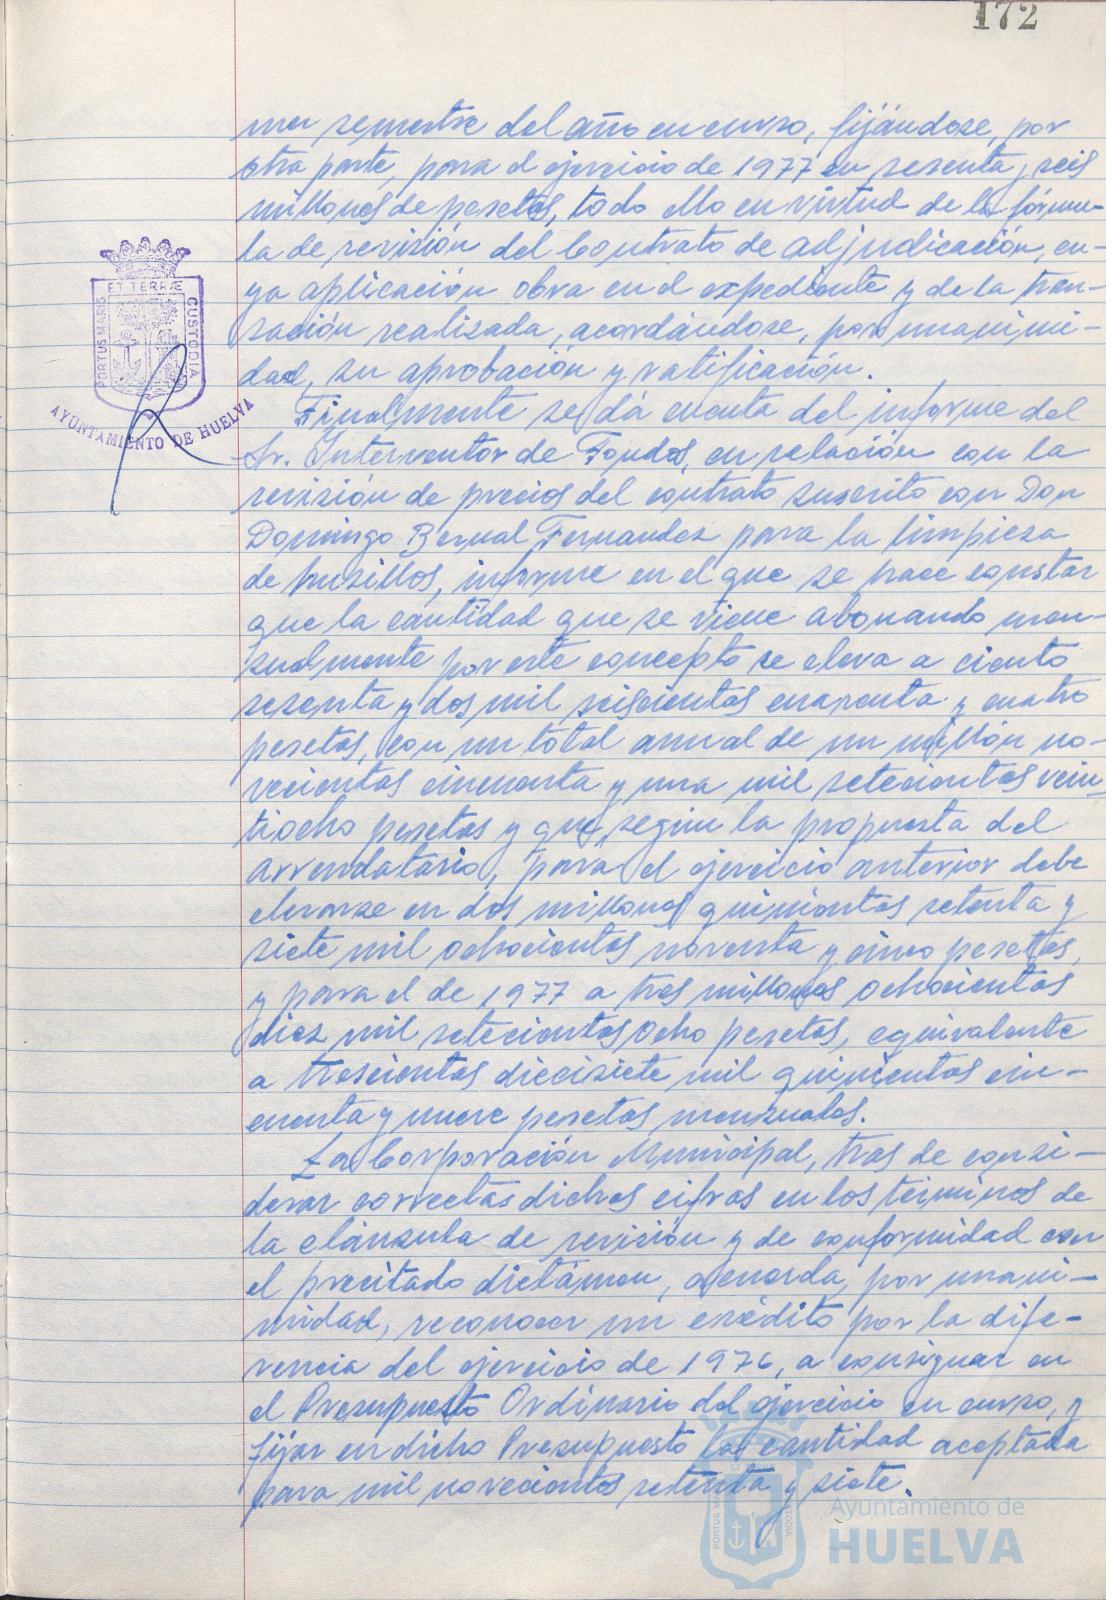 172
mer semestre del año en curso, fijándose, por
otra parte, para el ejercicio de 1977 en sesenta y seis
millones de pesetas, todo ello en virtud de la fórmu-
la de revisión del Contrato de adjudicación, cu-
ya aplicación obra en el expediente y de la tran-
sación realizada, acordándose, por unanimi-
dad, su aprobación y ratificación.
Finalmente se dá cuenta del informe del
Sr. Interventor de Fondos, en relación con la
revisión de precios del contrato suscrito con Don
Domingo Bernal Fernandez para la limpieza
de husillos, informe en el que se hace constar
que la cantidad que se viene abonando men-
sualmente por este concepto se eleva a ciento
sesenta y dos mil seiscientas cuarenta y cuatro
pesetas, con un total anual de un millón no-
vecientas cincuenta y una mil setecientas vein-
tiocho pesetas y que, según la propuesta del
arrendatario, para el ejercicio anterior debe
elevarse en dos millones quinientas setenta y
siete mil ochocientas noventa y cinco pesetas,
y para el de 1977 a tres millones ochocientas
diez mil setecientas ocho pesetas, equivalente
a trescientas diecisiete mil quinientas cin-
cuenta y nueve pesetas mensuales.
La Corporación Municipal, tras de consi-
derar correctas dichas cifras en los términos de
la cláusula de revisión y de conformidad con
el precitado dictámen, acuerda, por unani-
midad, reconocer un crédito por la dife-
rencia del ejercicio de 1976, a consignar en
el Presupuesto Ordinario del ejercicio en curso, y
fijar en dicho Presupuesto la cantidad aceptada
para mil novecientos setenta y siete.
PORTUS MARIS
ET TERRÆ
CUSTODIA
AYUNTAMIENTO DE HUELVA
PORTUS MARIS
CUSTODIA
Ayuntamiento de
HUELVA